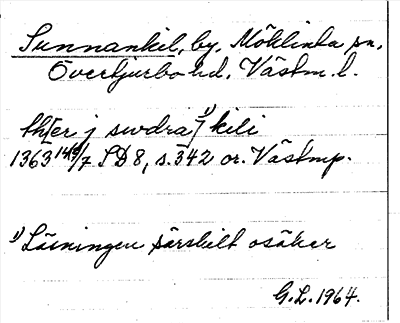 Sunnankil, by, Möklinta sn,
Övertjurbo hd, Västm. l.
th[er j swdra]¹⁾ kili
1363 14/7 SD 8, s. 342 or. Västmp.
¹⁾ Läsningen särskilt osäker
G.L. 1964.